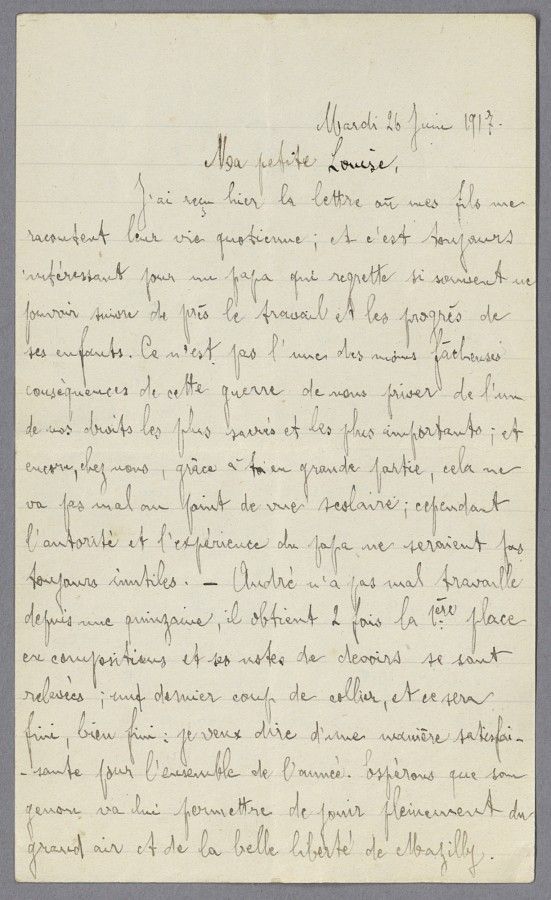 Mardi 26 Juin 1917.
Ma petite Louise,
J'ai reçu hier la lettre où mes fils me
racontent leur vie quotienne ; et c'est toujours
intéressant pour un papa qui regrette si souvent ne
pouvoir suivre de près le travail et les progrès de
ses enfants. Ce n'est pas l'une des moins fâcheuses
conséquences de cette guerre de nous priver de l'un
de nos droits les plus sacrés et les plus importants ; et
encore, chez nous, grâce à toi en grande partie, cela ne
va pas mal au point de vue scolaire ; cependant
l'autorité et l'expérience du papa ne seraient pas
toujours inutiles. — André n'a pas mal travaillé
depuis une quinzaine, il obtient 2 fois la 1ère place
en compositions et ses notes de devoirs se sont
relevées ; un dernier coup de collier, et ce sera
fini, bien fini : je veux dire d'une manière satisfai-
-sante pour l'ensemble de l'année. Espérons que son
genou va lui permettre de jouir pleinement du
grand air et de la belle liberté de Mazilly.